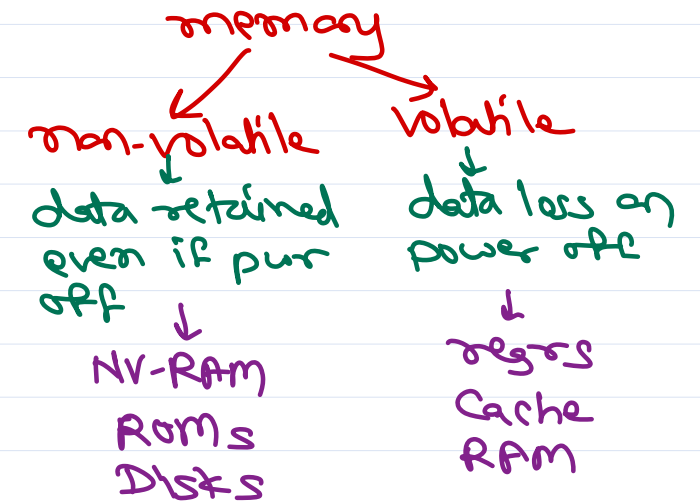 memory
non-volatile
data retained
even if pwr
off
NV-RAM
ROMs
Disks
volatile
data loss on
power off
regrs
Cache
RAM